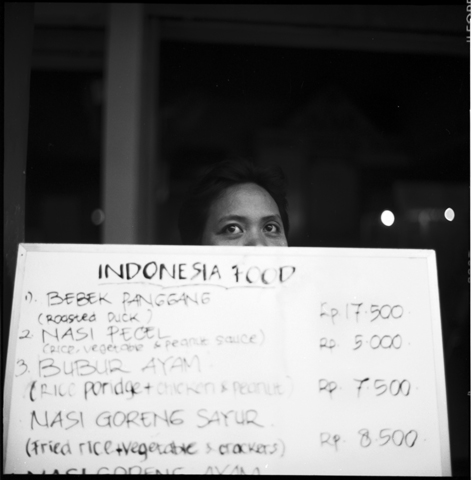 INDONESIA FOOD
1). BEBEK PANGGANG
(ROASTED DUCK)
Rp 17.500
2. NASI PECEL
(RICE, vegetable & peanut sauce)
Rp. 5.000
3. BUBUR AYAM
(RICE poridge + chicken & peanut)
Rp. 7.500
NASI GORENG SAYUR
(fried rice+vegetable & crackers)
Rp. 8.500
NASI GORENG AYAM